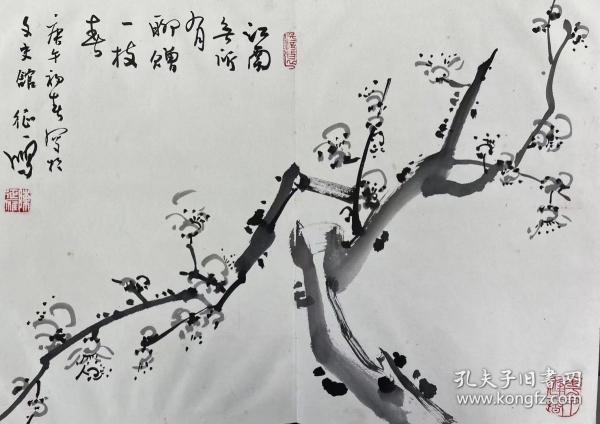 江南
無所
有
聊贈
一枝
春
庚午初春寫於
文史館 征鴻
孔夫子旧书网
www.kongfz.com